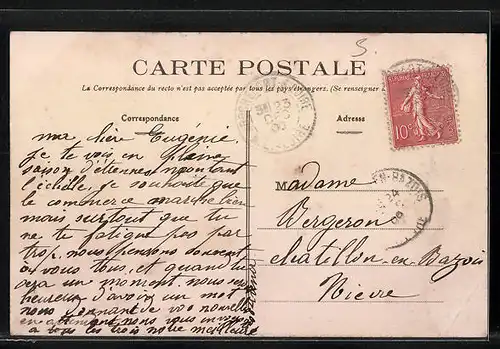 5
CARTE POSTALE
La Correspondance du recto n'est pas acceptée par tous les pays étrangers. (Se renseigner
Correspondance
Adresse
10
ma chère Eugénie.
Je te vois en pleine
saison d'étrennes
l'échelle, je souhaite que
le commerce marche bien
mais surtout que tu
ne te fatigue pas par
trop, nous pensons souvent
à vous tous, et quand tu
aura un moment, nous serons
heureux d'avoir un mot
nous donnant de vos nouvelles
en attendant nous vous envoyons
à tous les trois notre meilleure
Madame
Bergeron
Chatillon-en-Bazois
Nievre